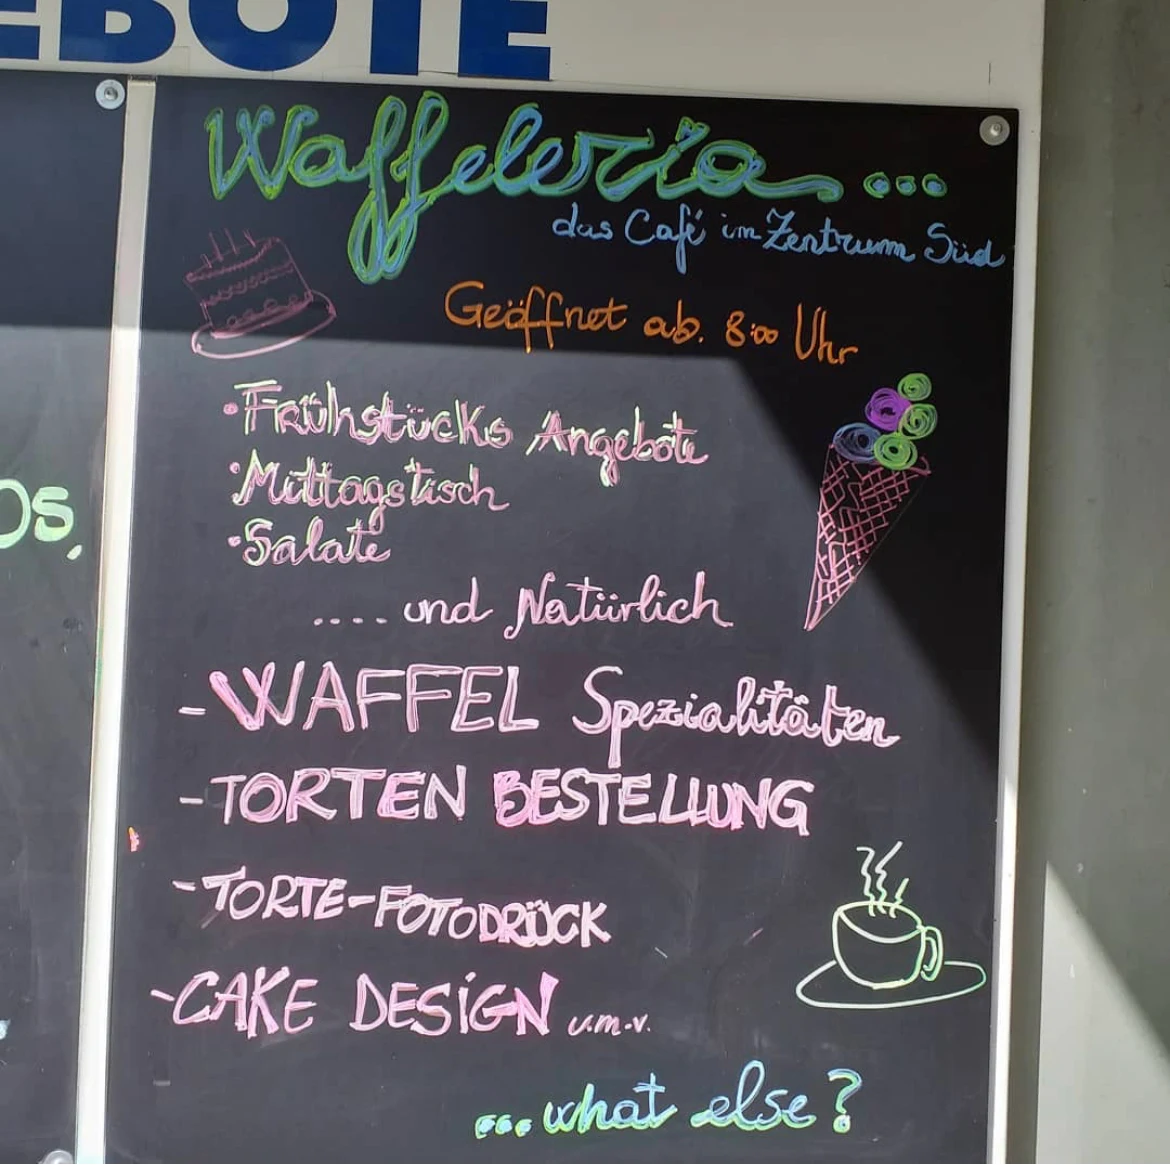 EBOTE
Waffeleria...
das Café im Zentrum Süd
Geöffnet ab. 8:00 Uhr
·Frühstücks Angebote
·Mittagstisch
·Salate
os.
.... und Natürlich
- WAFFEL Spezialitäten
- TORTEN BESTELLUNG
- TORTE-FOTODRÜCK
- CAKE DESiGN u.m.v.
...what else?